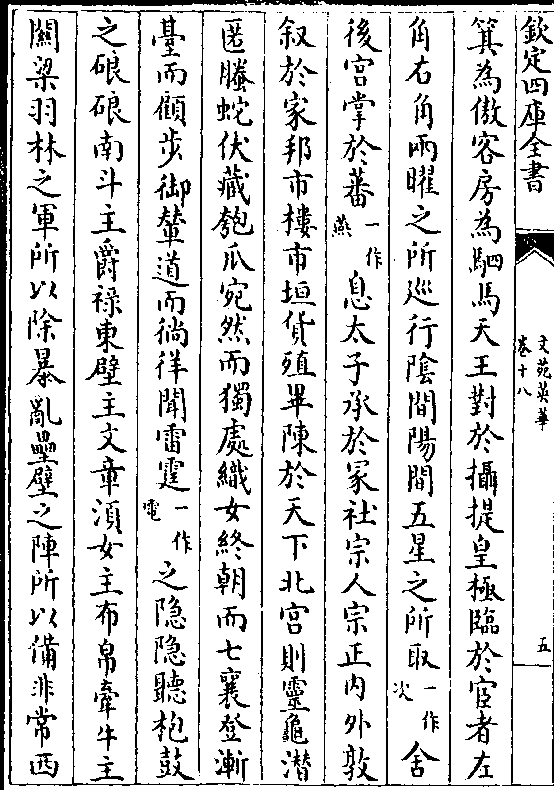 欽定四庫全書
文苑英華
卷十八
五
箕為傲客房為駟馬天王對於攝提皇極臨於宦者左
角右角兩曜之所巡行陰間陽間五星之所取一作次舍
後宮掌於蕃一作燕息太子承於冢社宗人宗正内外敦
叙於家邦市樓市垣貨殖畢陳於天下北宮則靈龜潛
匿螣蛇伏藏匏瓜宛然而獨處織女終朝而七襄登漸
臺而顧步御輦道而徜徉聞雷霆一作電之隐隐聽枹鼓
之硠硠南斗主爵祿東壁主文章湏女主布帛牽牛主
關梁羽林之軍所以除暴亂壘壁之陣所以備非常西